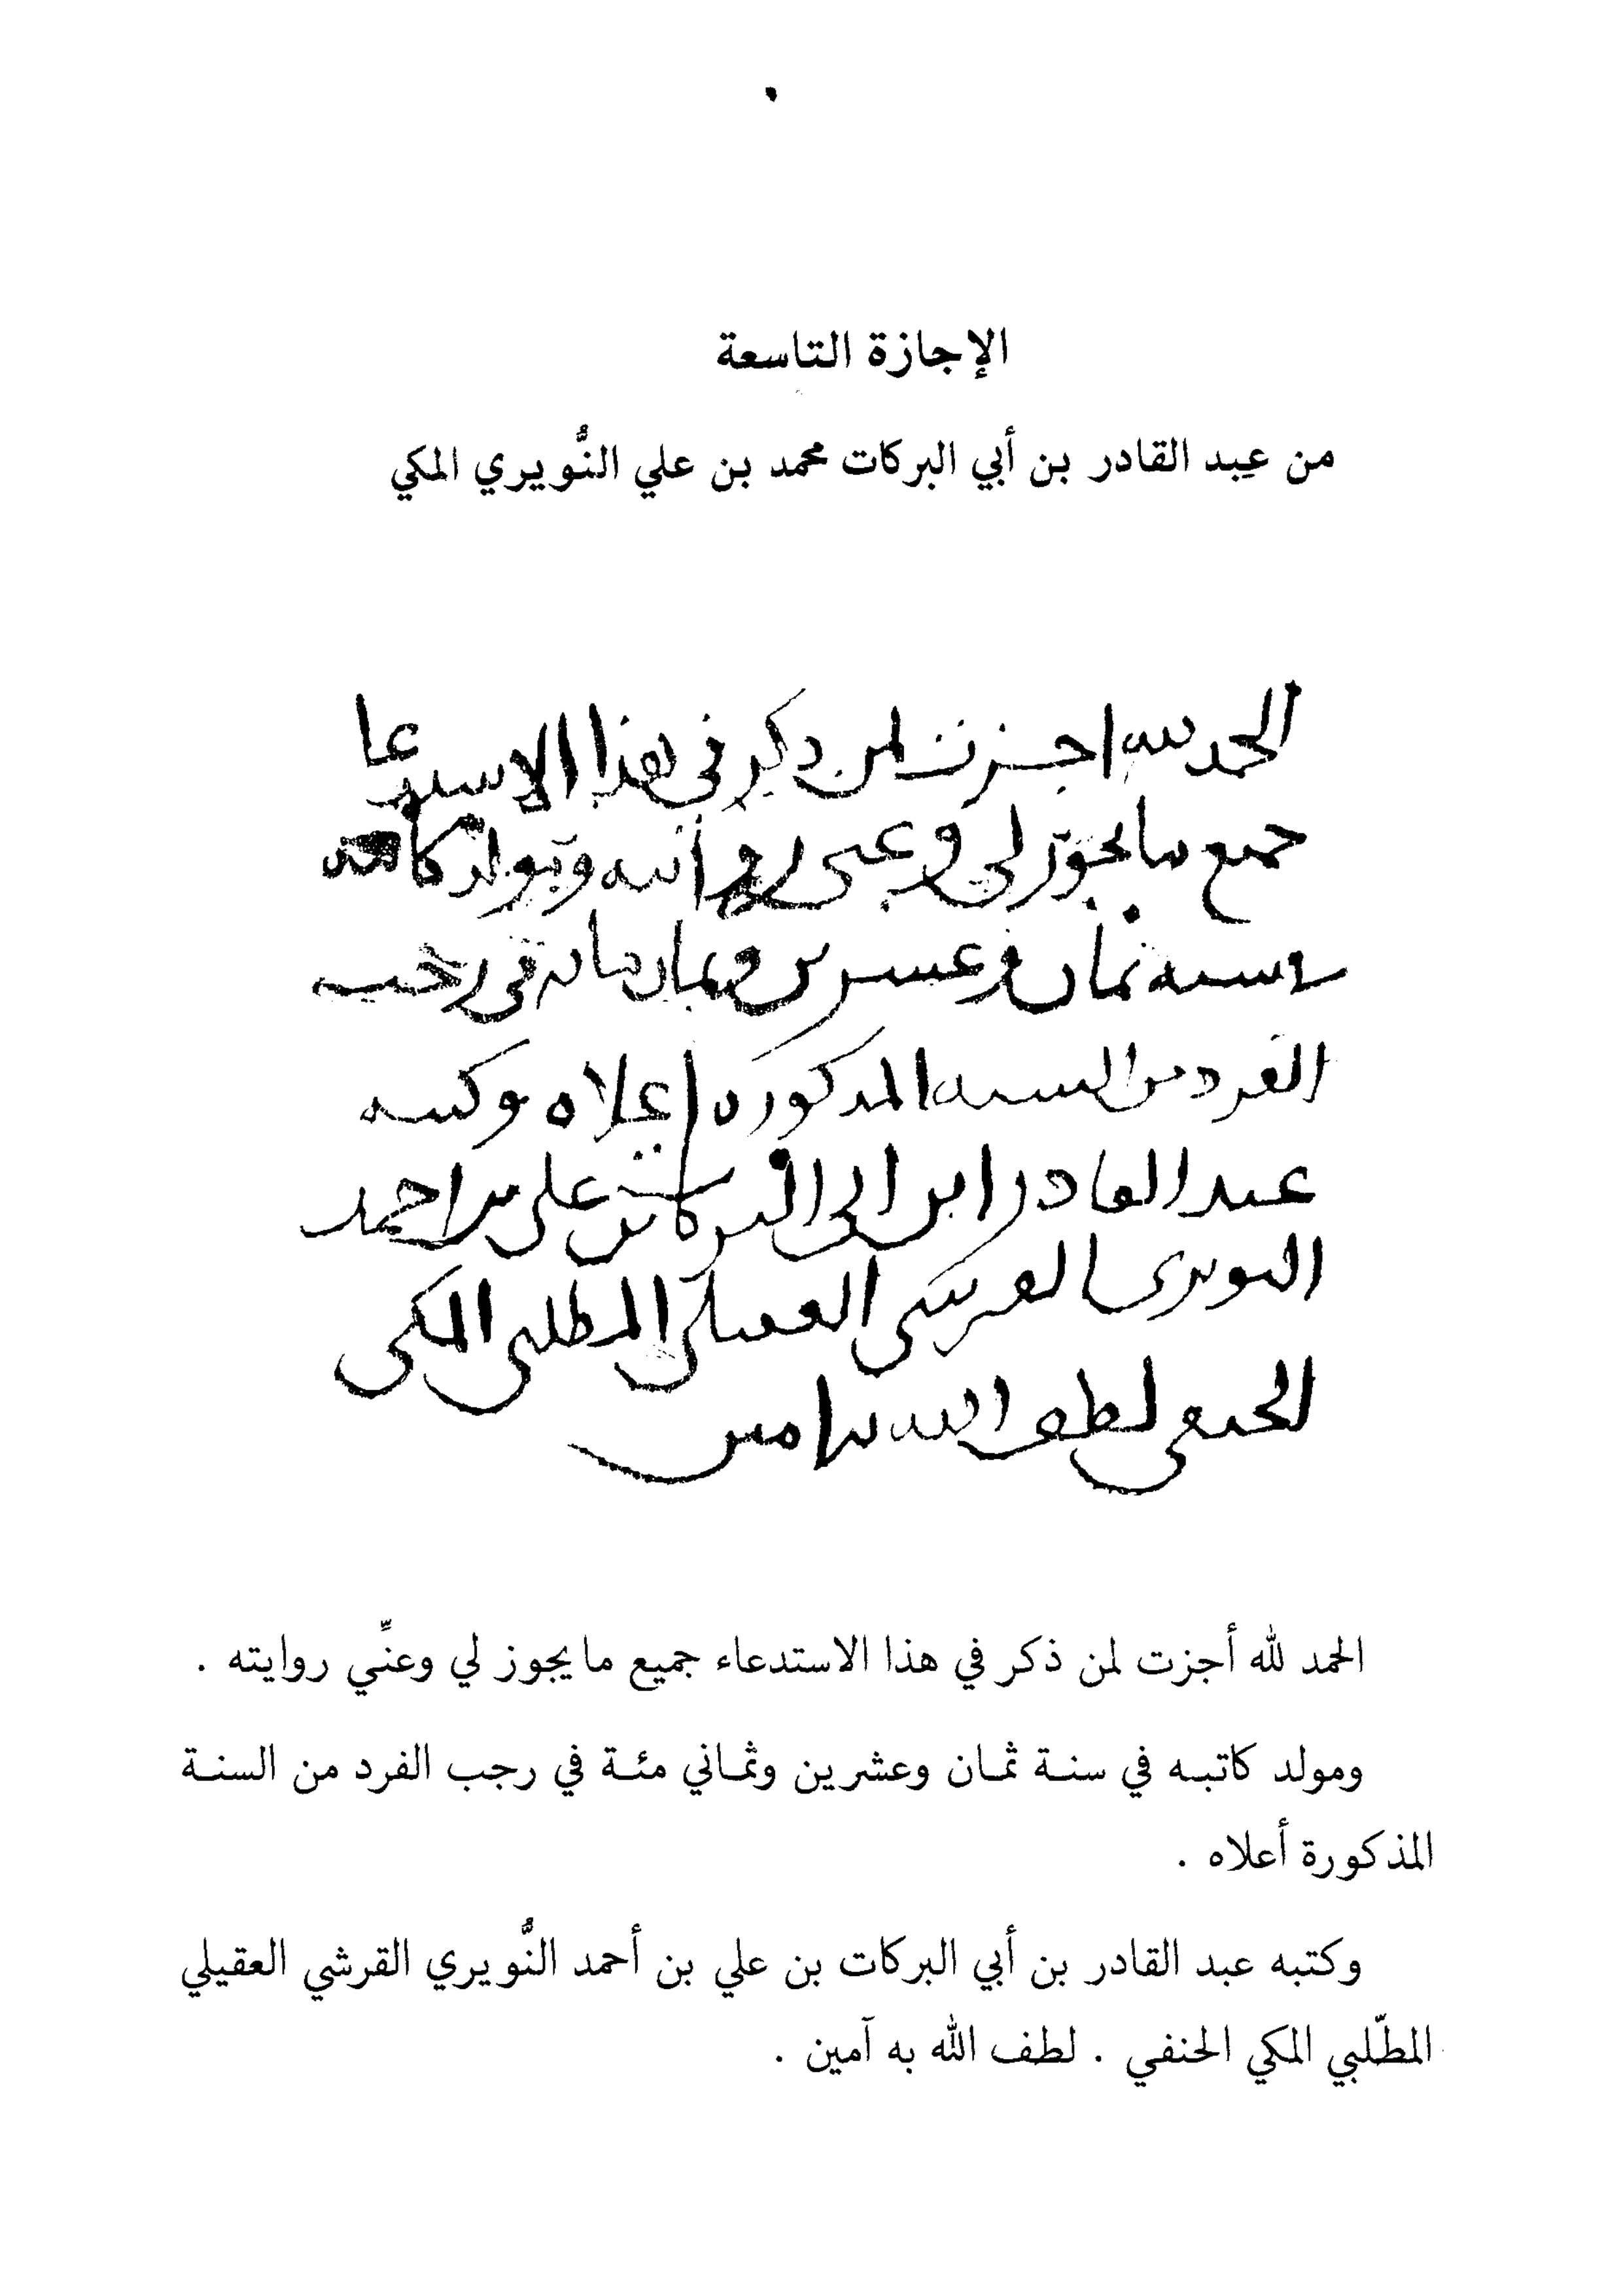 الإجازة التاسعة
من عبد القادر بن أبي البركات محمد بن علي النُّويري المكي
الحمد لله اجزت لمن ذكر في هذا الاستدعا
جميع ما يجوز لي وعني روايته ومولد كاتبه
في سنه ثمان وعشرين وثمان مايه في رجب
الفرد من السنه المذكوره اعلاه وكتبه
عبد القادر ابن ابي البركات بن علي بن احمد
النويري القرشي العقيلي المطلبي المكي
الحنفي لطف الله به امين
الحمد لله أجزت لمن ذكر في هذا الاستدعاء جميع ما يجوز لي وعنِّي روايته .
ومولد كاتبه في سنة ثمان وعشرين وثماني مئة في رجب الفرد من السنة
المذكورة أعلاه .
وكتبه عبد القادر بن أبي البركات بن علي بن أحمد النُّويري القرشي العقيلي
المطّلبي المكي الحنفي . لطف الله به آمين .